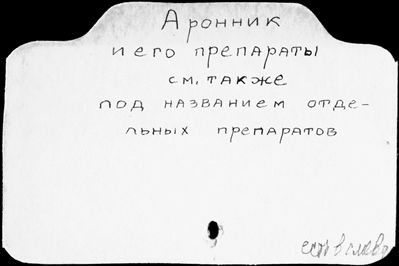 Аронник
и его препараты
см. также
под названием отде-
льных препаратов
есть в